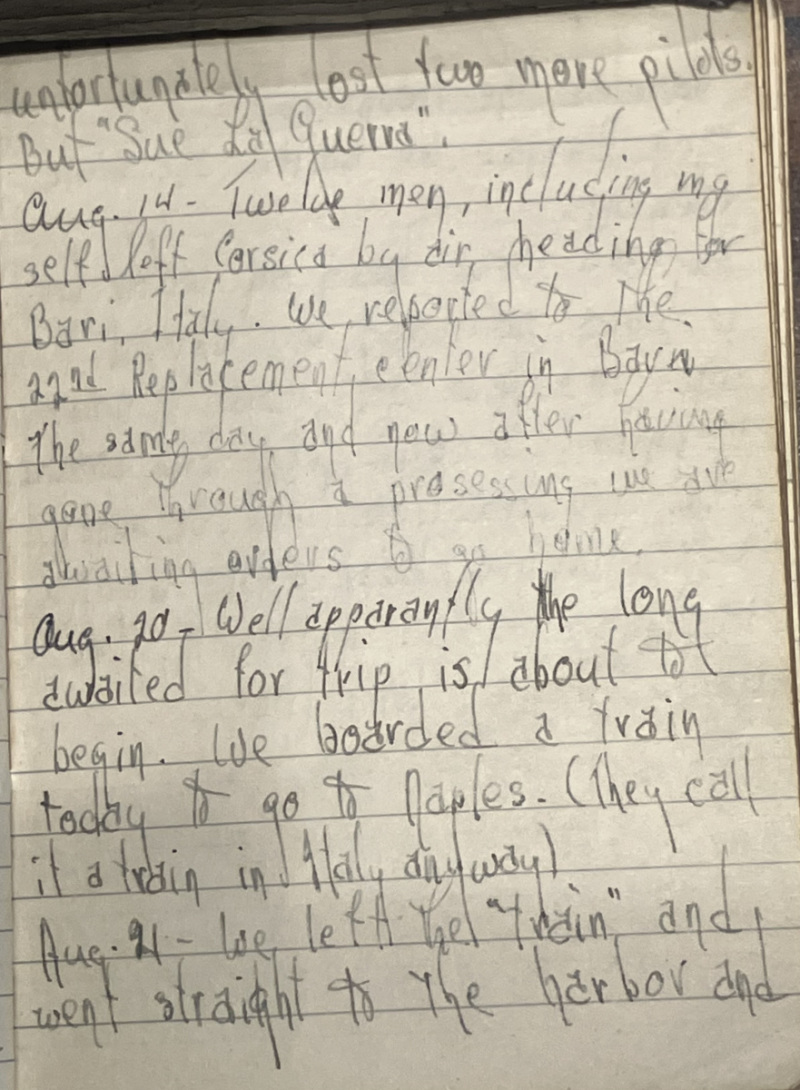 unfortunately lost two more pilots.
But "Sue La Guerra".
Aug. 14 - Twelve men, including my
self left Corsica by air, heading for
Bari, Italy. We reported to the
22nd Replacement center in Barri
the same day and now after having
gone through a prosessing we are
awaiting orders to go home.
Aug. 20 - Well apparantly the long
awaited for trip is about to
begin. We boarded a train
today to go to Naples. (They call
it a train in Italy anyway)
Aug. 21 - We left the "train" and
went straight to the harbor and